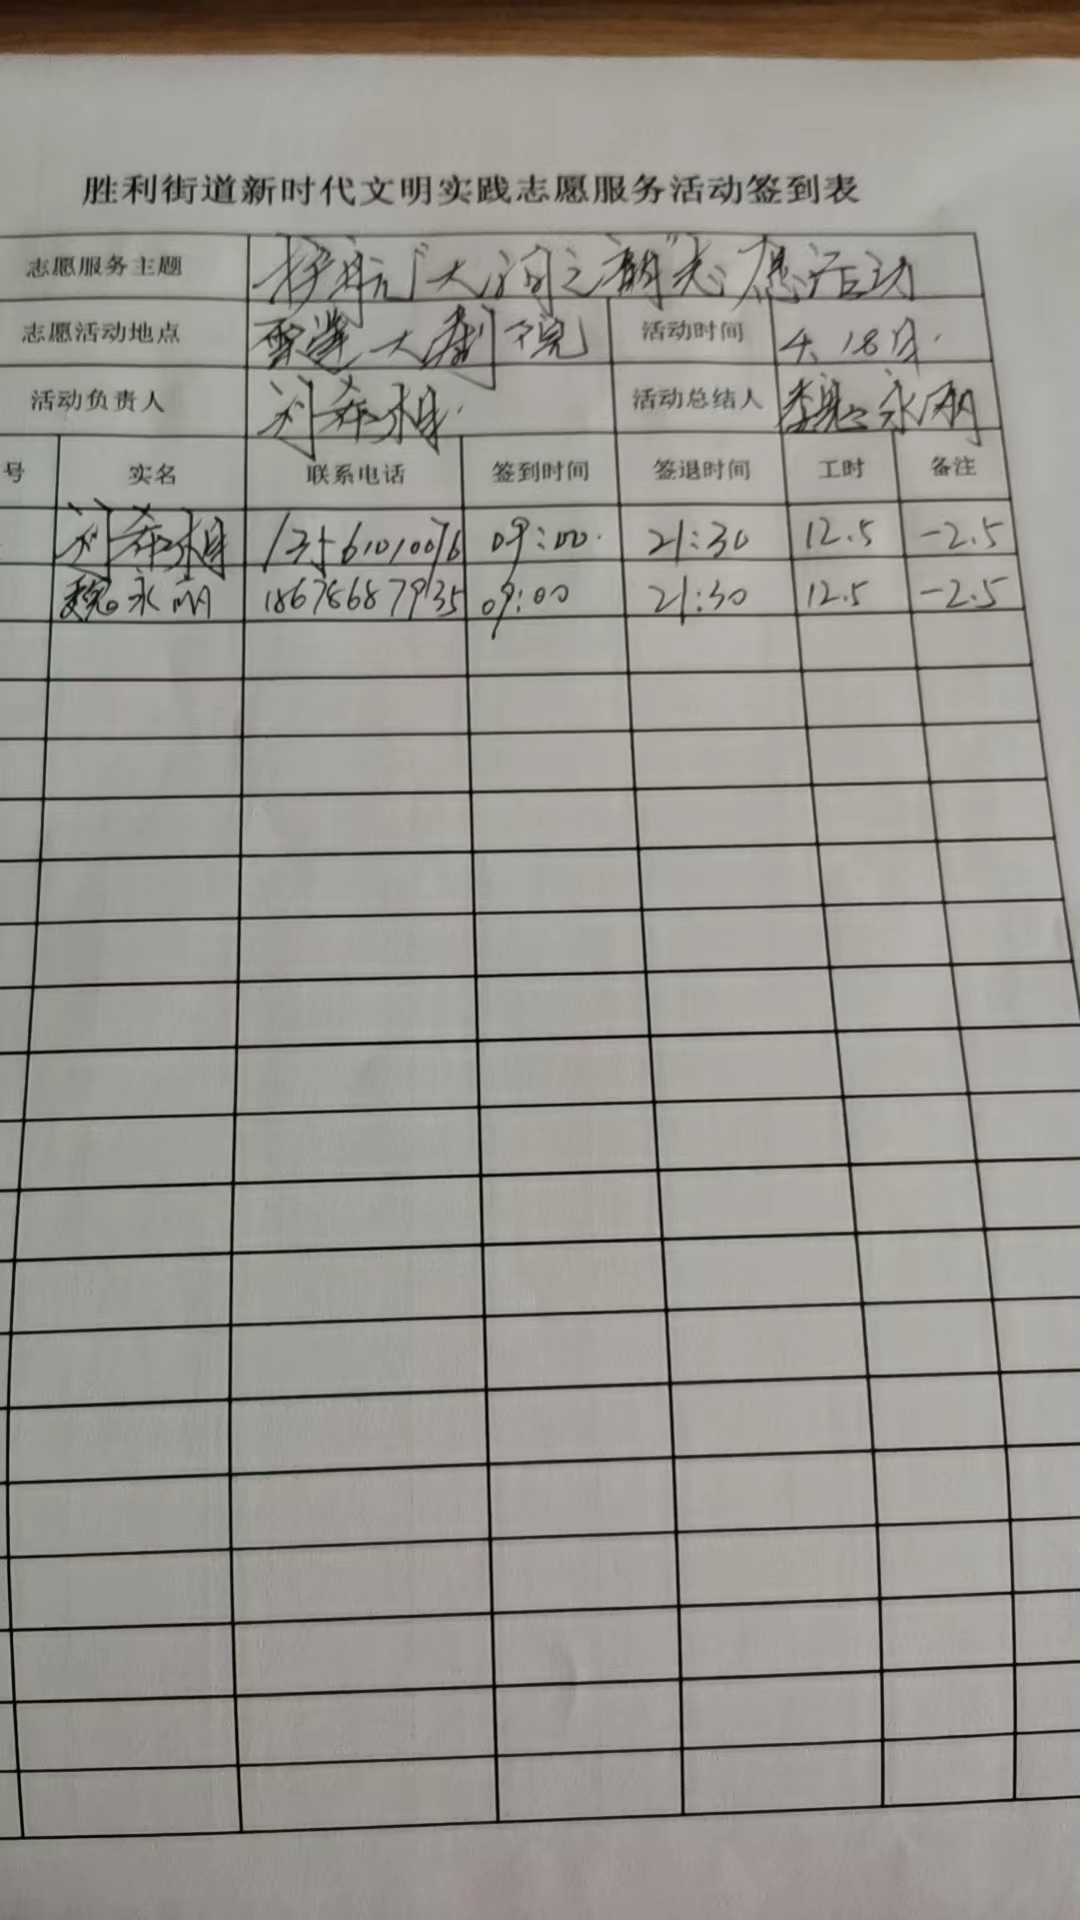 胜利街道新时代文明实践志愿服务活动签到表
志愿服务主题 护航"大河之韵"志愿活动
志愿活动地点 雪莲大剧院 活动时间 4.18日.
活动负责人 刘希相. 活动总结人 魏永丽
号 实名 联系电话 签到时间 签退时间 工时 备注
刘希相 09:00. 21:30 12.5 -2.5
魏永丽 18678687935 09:00 21:30 12.5 -2.5